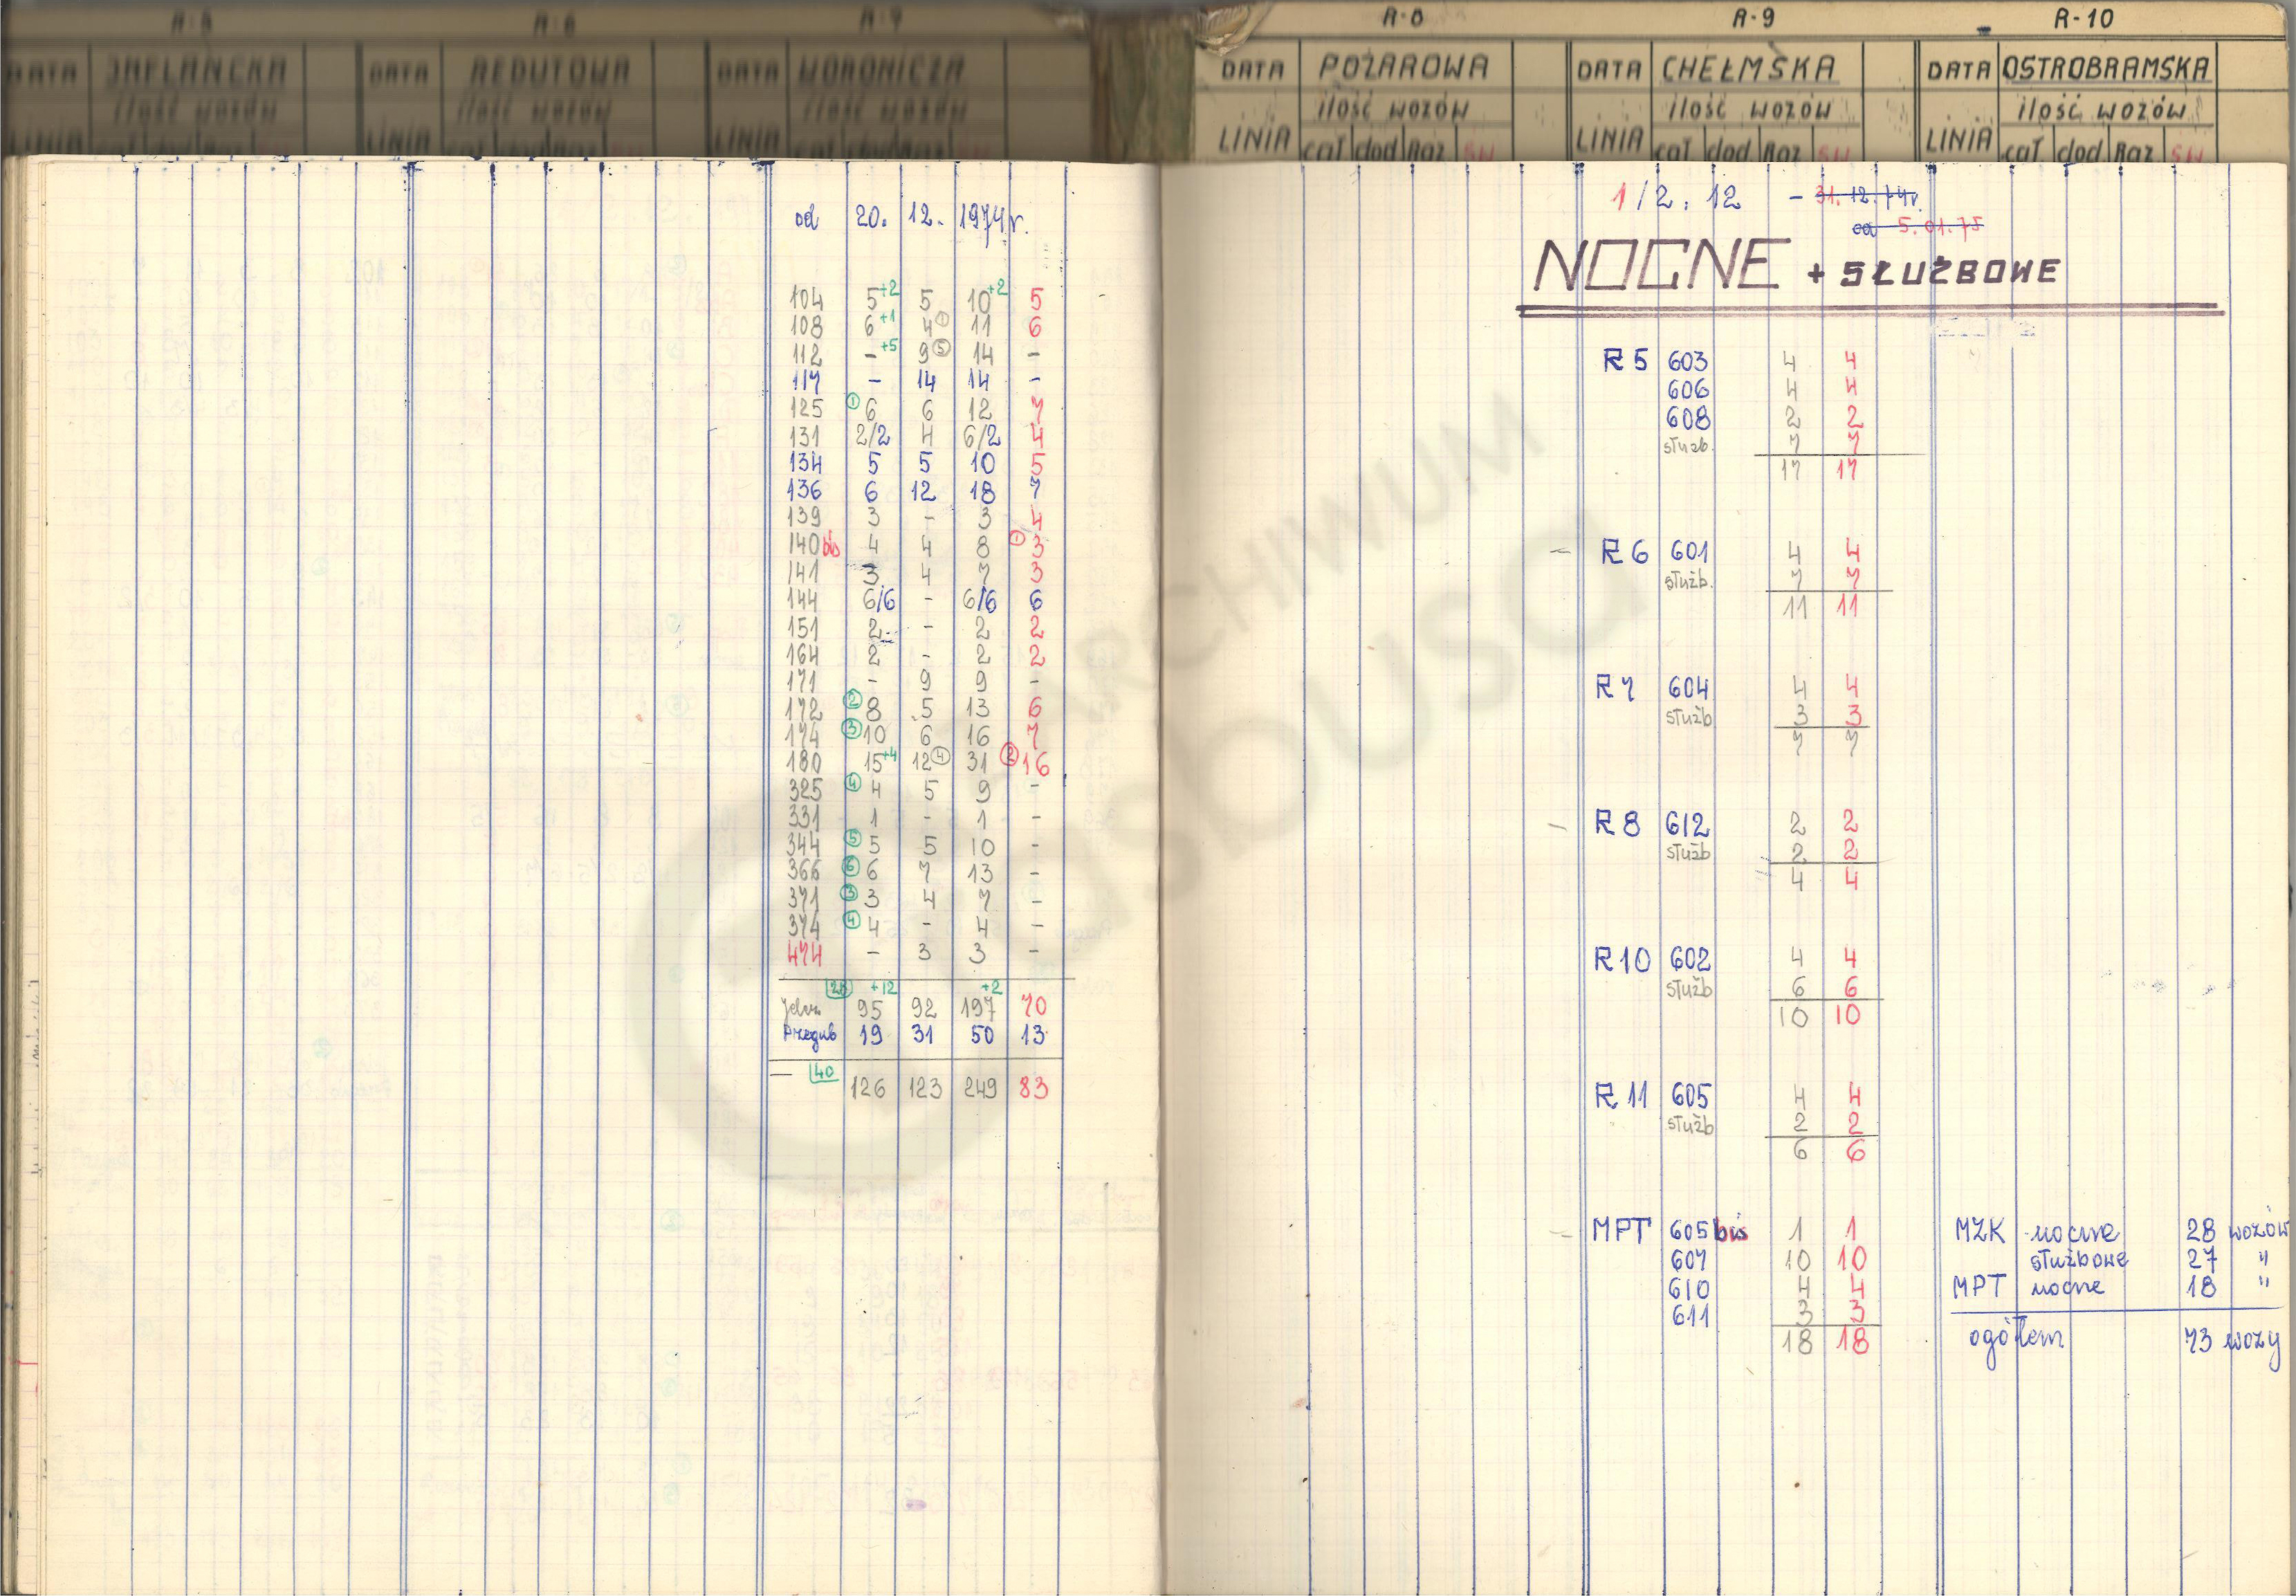 R-5 R-6 R-7
DATA REDUTOWA DATA WORONICZA
ilość wozów ilość wozów ilość wozów
LINIA LINIA LINIA
R-8 R-9 R-10
DATA POŻAROWA DATA CHEŁMSKA DATA OSTROBRAMSKA
ilość wozów ilość wozów ilość wozów
LINIA cał dod Raz św LINIA cał dod Raz św LINIA cał dod Raz św
od 20. 12. 1974r.
104 5+2 5 10+2 5
108 6+1 4① 11 6
112 -+5 9⑤ 14 -
117 - 14 14 -
125 ①6 6 12 7
131 2/2 4 6/2 4
134 5 5 10 5
136 6 12 18 7
139 3 - 3 4
140bis 4 4 8 ①3
141 3 4 7 3
144 6/6 - 6/6 6
151 2 - 2 2
164 2 - 2 2
171 - 9 9 -
172 ②8 5 13 6
174 ③10 6 16 7
180 15+4 12④ 31 ②16
325 ④4 5 9 -
331 1 - 1 -
344 ⑤5 5 10 -
366 ⑥6 7 13 -
371 ③3 4 7 -
374 ④4 - 4 -
474 - 3 3 -
+12 +2
95 92 197 70
Przegub 19 31 50 13
- 40 126 123 249 83
1/2. 12 - 31. 12. 74r.
od 5.01.75
NOCNE + SŁUŻBOWE
R5 603 4 4
606 4 4
608 2 2
służb. 7 7
17 17
- R6 601 4 4
służb. 7 7
11 11
R7 604 4 4
służb 3 3
7 7
- R8 612 2 2
służb 2 2
4 4
R10 602 4 4
służb 6 6
10 10
R11 605 4 4
służb 2 2
6 6
- MPT 605bis 1 1
607 10 10
610 4 4
611 3 3
18 18
MZK nocne 28 wozów
służbowe 27 "
MPT nocne 18 "
ogółem 73 wozy
ARCHIWUM